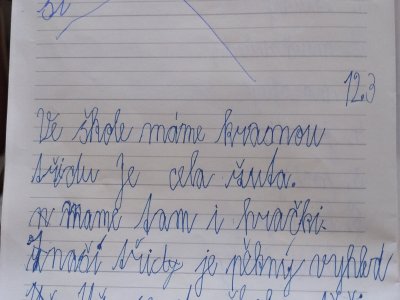 si
12.3
Ve škole máme krasnou
třidu Je cela žuta.
mame tam i hrački.
třidy je pěkný vyhled